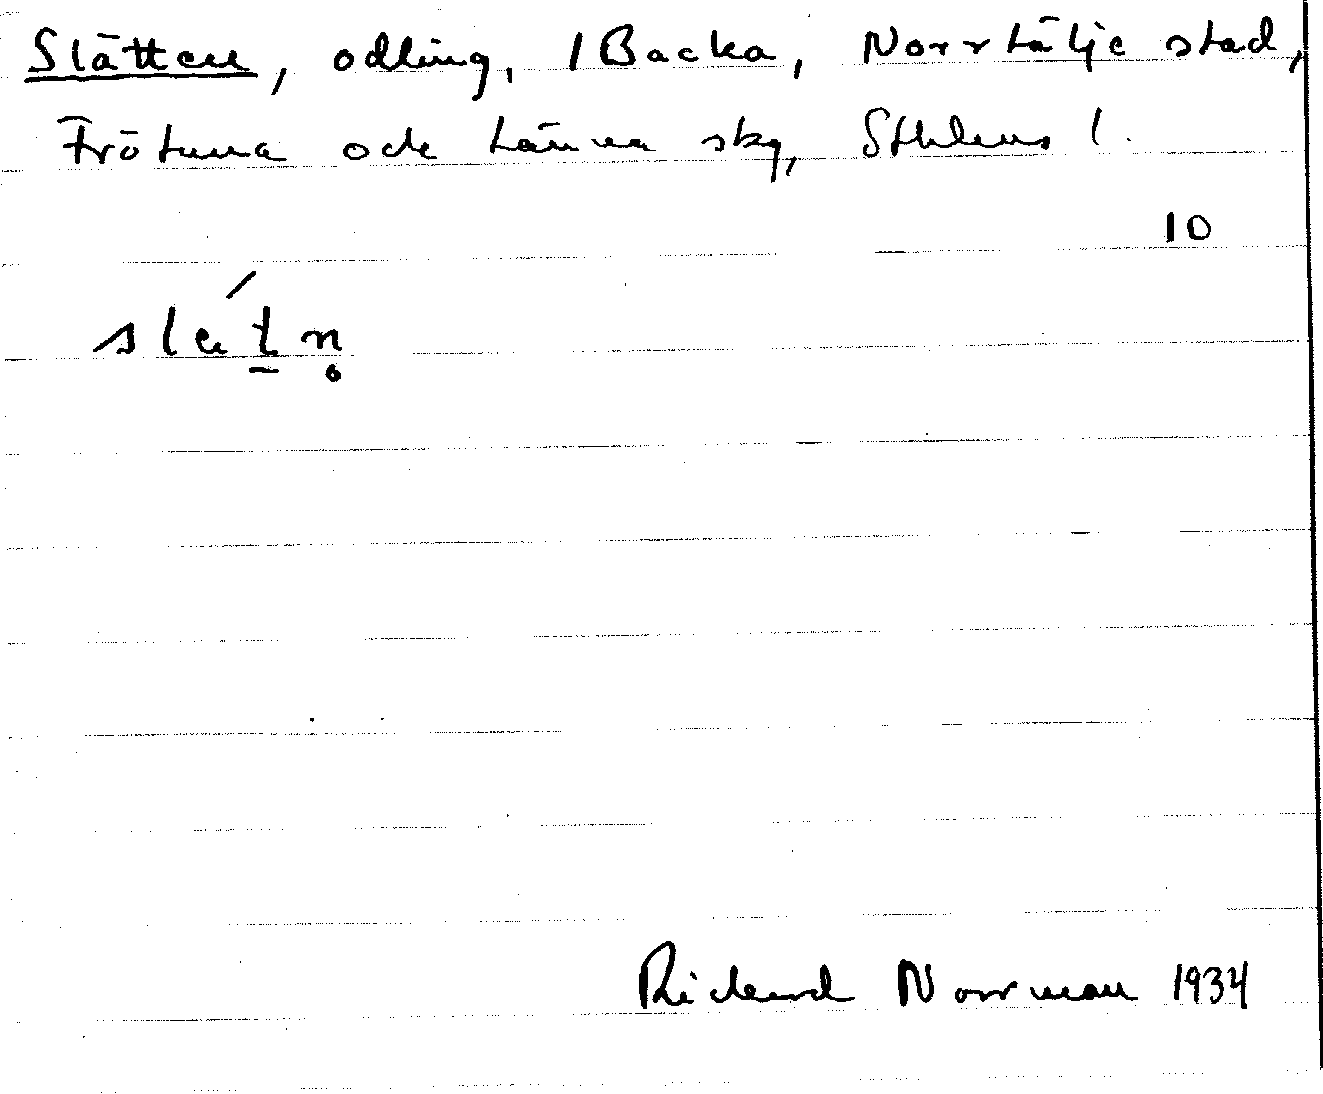 Slätten, odling, 1 Backa, Norrtälje stad,
Frötuna och Länna skg, Sthlms l.
10
slätn̥
Richard Norrman 1934